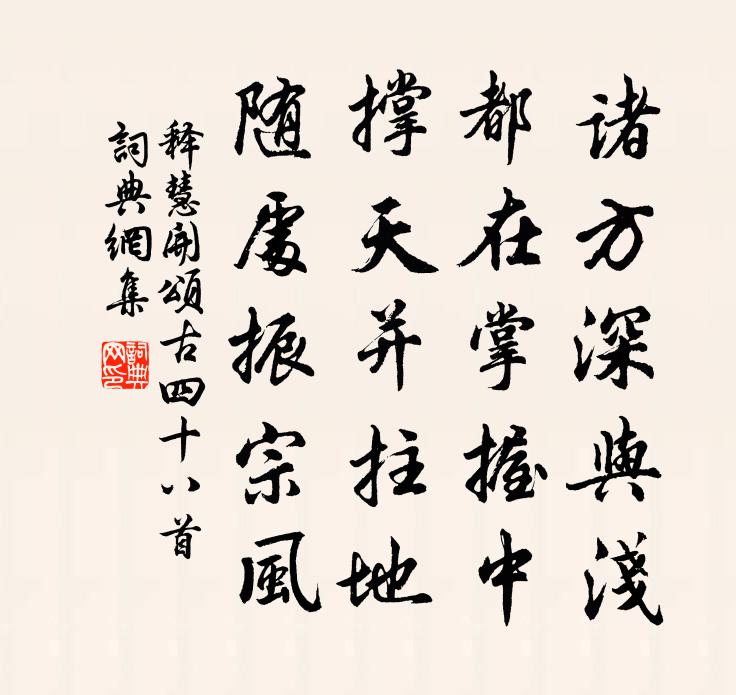 诸方深與淺
都在掌握中
撑天并拄地
随處振宗風
释慧開頌古四十八首
詞典網集
詞典网印